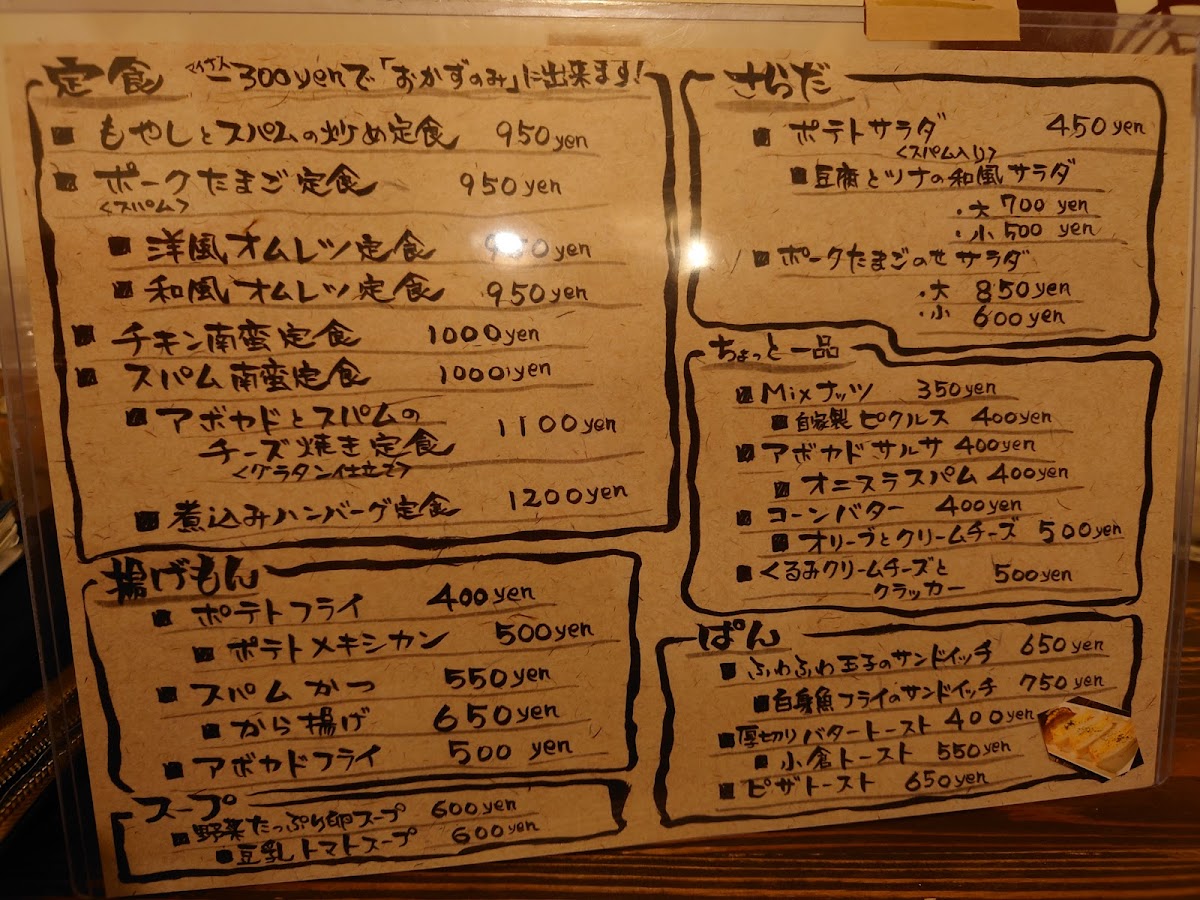 定食 マイナス -300yenで「おかずのみ」に出来ます!
もやしとスパムの炒め定食 950yen
ポークたまご定食 950yen
<スパム>
洋風オムレツ定食 950yen
和風オムレツ定食 950yen
チキン南蛮定食 1000yen
スパム南蛮定食 1000yen
アボカドとスパムの
チーズ焼き定食 1100yen
<グラタン仕立て>
煮込みハンバーグ定食 1200yen
揚げもん
ポテトフライ 400yen
ポテトメキシカン 500yen
スパムかつ 550yen
から揚げ 650yen
アボカドフライ 500yen
スープ
野菜たっぷり卵スープ 600yen
豆乳トマトスープ 600yen
さらだ
ポテトサラダ 450yen
<スパム入り>
豆腐とツナの和風サラダ
・大 700yen
・小 500yen
ポークたまごのせサラダ
・大 850yen
・小 600yen
ちょっと一品
Mixナッツ 350yen
自家製ピクルス 400yen
アボカドサルサ 400yen
オニスラスパム 400yen
コーンバター 400yen
オリーブとクリームチーズ 500yen
くるみクリームチーズと
クラッカー 500yen
ぱん
ふわふわ玉子のサンドイッチ 650yen
白身魚フライのサンドイッチ 750yen
厚切りバタートースト 400yen
小倉トースト 550yen
ピザトースト 650yen